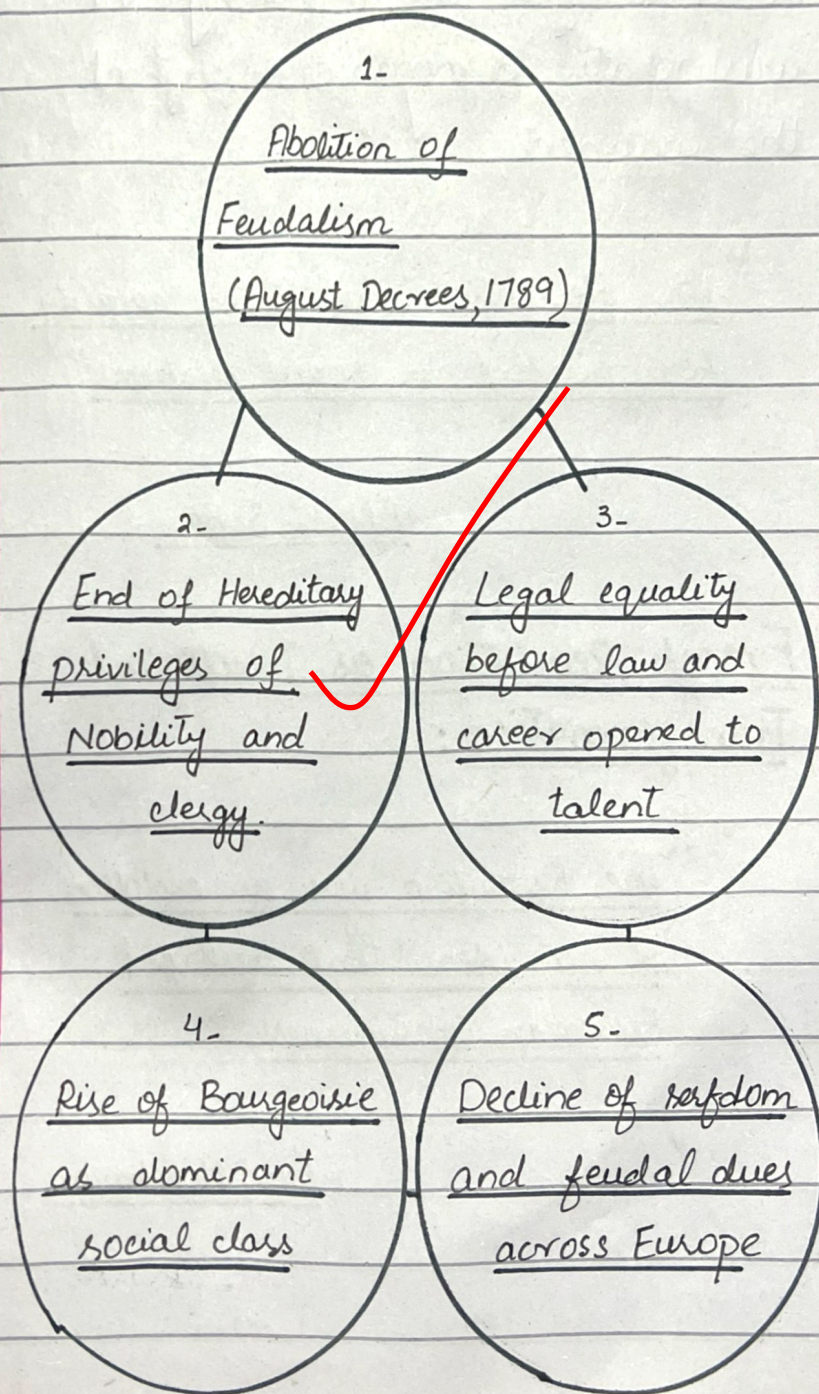 1-
Abolition of
Feudalism
(August Decrees, 1789)
2-
End of Hereditary
privileges of
Nobility and
clergy.
3-
Legal equality
before law and
career opened to
talent
4-
Rise of Bourgeoisie
as dominant
social class
5-
Decline of serfdom
and feudal dues
across Europe